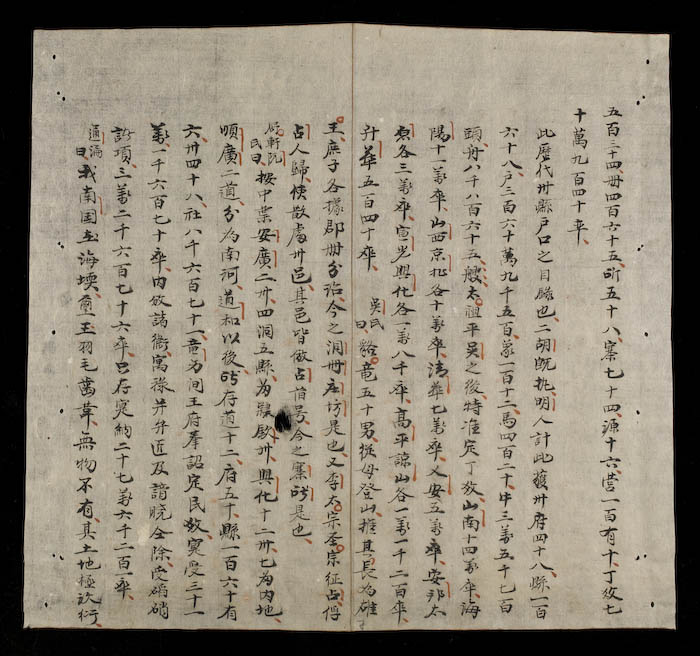 五百三十四冊四百六十五所五十八寨七十四源十六营一百有十丁放七
十萬九百四十率
此歷代卅縣戶口之目録也二胡既挑明人計此獲卅府四十八縣一百
六十八戶三百六十萬九千五百象一百十二馬四百二十牛三萬五千七百
頭舟八千八百六十五艘太祖平吳之後特准定丁放山南十四萬率海
陽十一萬率山西京北各十萬率清華七萬率乂安五萬率安邦太
原各三萬率宣光興化各一萬八千率高平諒山各一萬一千二百率
升華五百四十率 吳氏曰貉竜五十男從母登山推其長為雄
王庶子各據郡冊分治今之洞冊庄坊是也又李太宗圣宗征占俘
占人歸使散處卅邑其邑皆做占旧号今之寨所是也
阮軒氏曰按中葉安廣二卅四洞五縣為卅興化十二卅七為内地
順廣二道分為南河道和以後所存道十二府五十縣一百六十有
六卅四十八社八千六百七十一竜为间王府奉詔定民放寔受三十一
萬一千六百七十率内放諸衛寓祿并升近及諳晓全除受硝
諸項三萬二千六百七十六率只存寔納二十七萬六千二百一率
通論曰我南国土海堧玉羽毛齒革無物不有其土地極沃衍